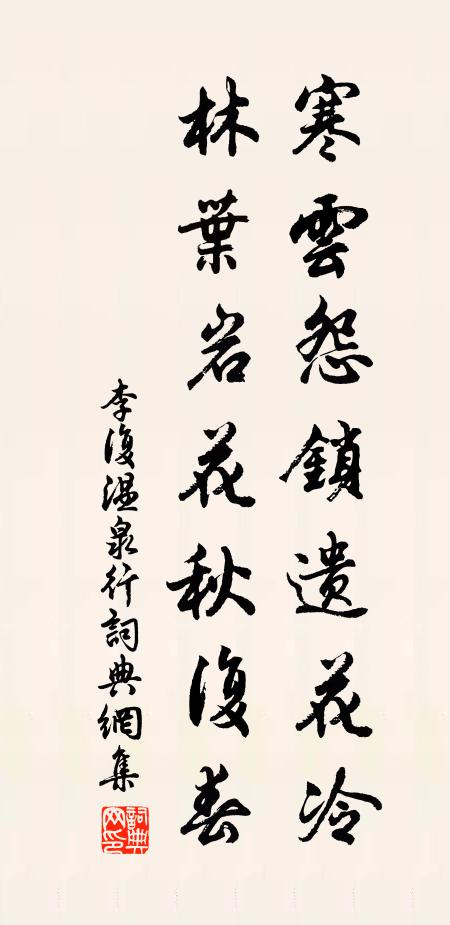 寒雲怨鎖遺花冷
林葉岩花秋復春
李復溫泉行詞典網集
詞典網印